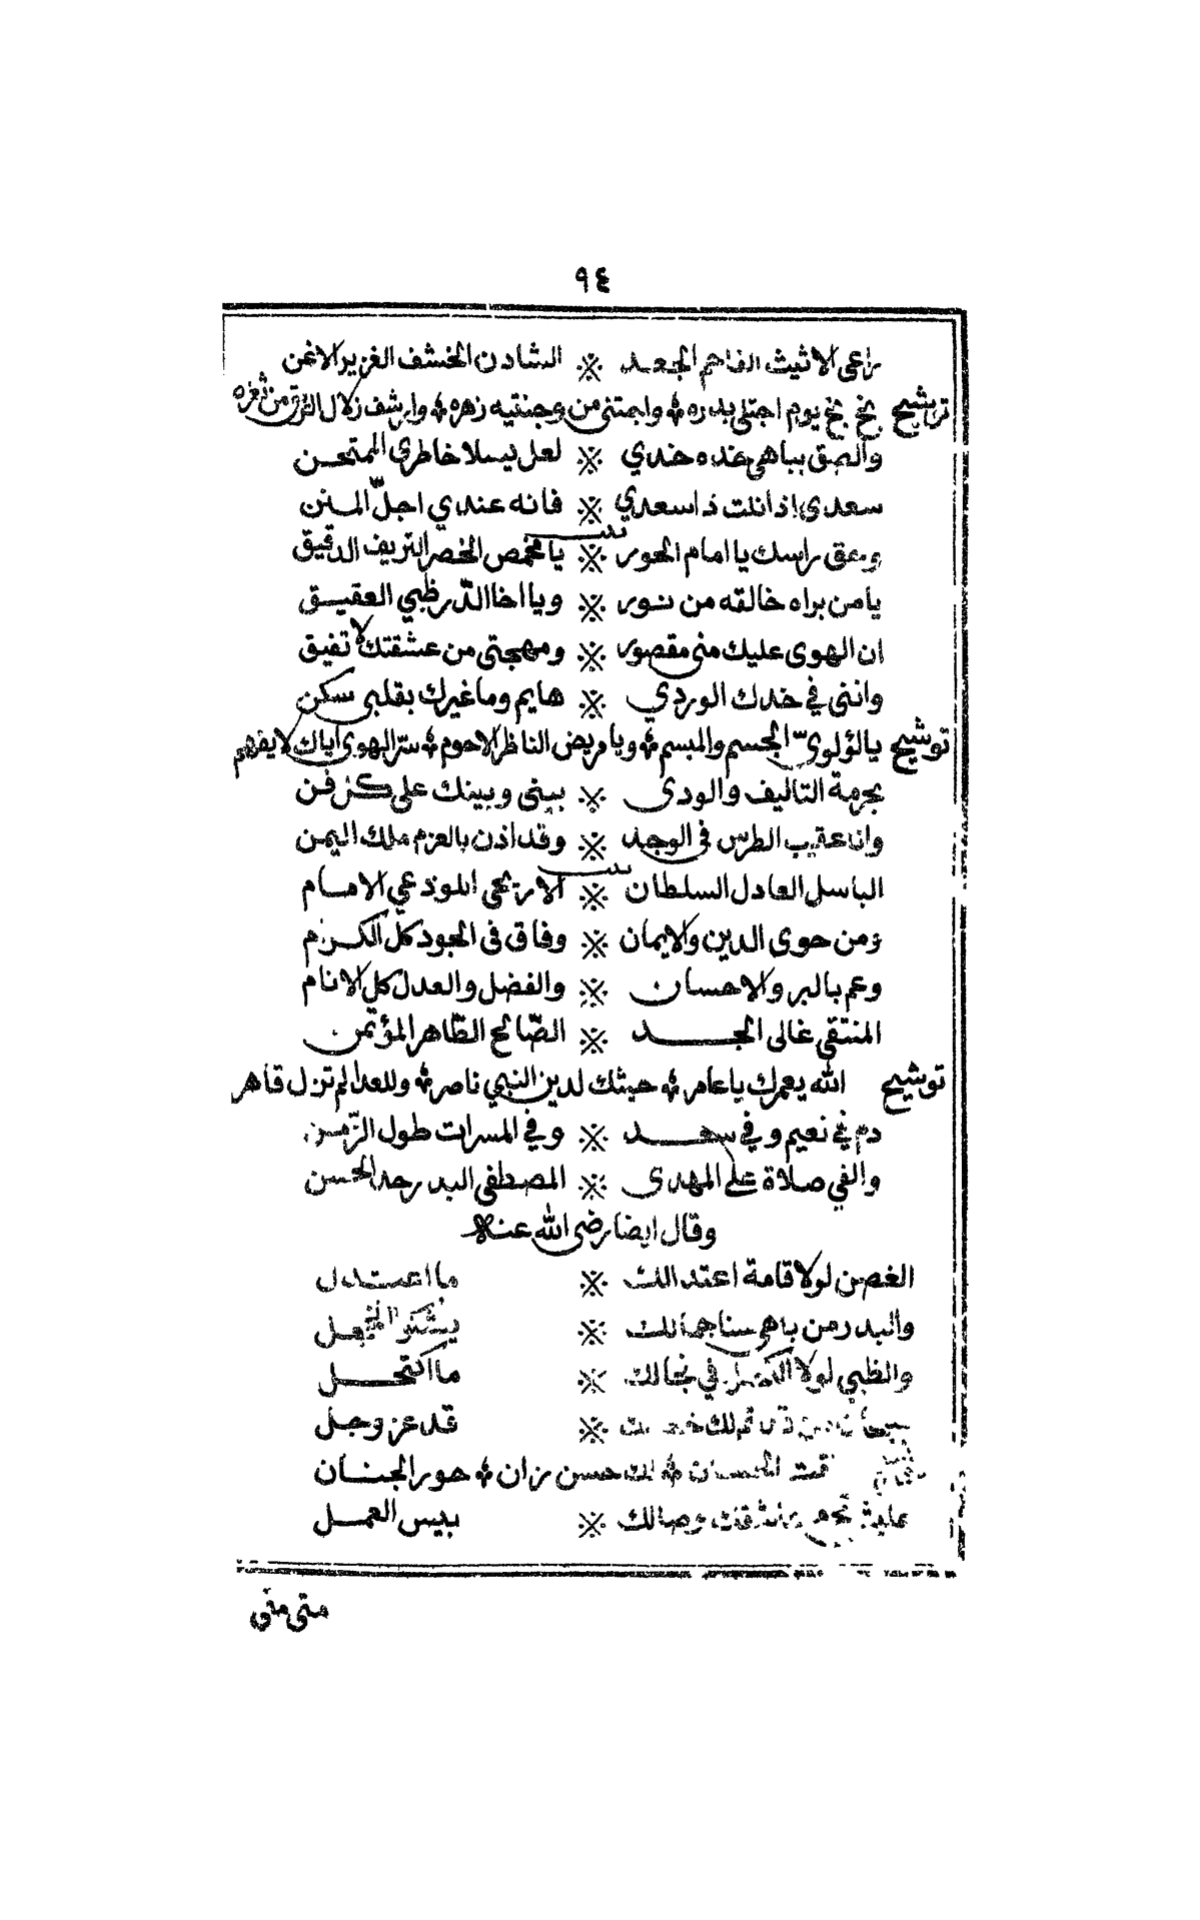 ٩٤
راعى الاثيث الفاحم الجعد ※ الشادن الخشف الغرير الاغن
ترشيح بخ بخ يوم اجتلى بدره * واجتنى من وجنتيه زهره * وارشف زلال الريق من ثغره
والصق بباهى خده خدي ※ لعل يسلا خاطرى الممتحن
سعدى اذا نلت ذا سعدي ※ فانه عندي اجلّ المنن
بيت
وعق راسك يا امام الحور ※ يا مخمص الخصر التريف الدقيق
يا من براه خالقه من نور ※ ويا اخا الدّر ظبي العقيق
ان الهوى عليك منى مقصور ※ ومهجتى من عشقتك لا تفيق
واننى في خدك الوردي ※ هايم وما غيرك بقلبى سكن
توشيح يا لؤلوىّ الجسم والمبسم * ويا مريض الناظر الاحوم * سرّ الهوى اياك لا يفهم
بحرمة التاليف والودى ※ بينى وبينك على كل فن
وانا عقيب الطرس فى الوجد ※ وقد اذن بالعزم ملك اليمن
بيت
الباسل العادل السلطان ※ الاريحى اللوذعي الامام
ومن حوى الدين والايمان ※ وفاق فى الجود كلّ الكرام
وعم بالبر والاحسان ※ والفضل والعدل كل الانام
المنتقى غالى الجد ※ الصّالح الطّاهر المؤتمن
توشيح الله يعمرك يا عامر * حيثك لدين النبي ناصر * وللعدا لم تزل قاهر
دم في نعيم وفي سعد ※ وفي المسرات طول الزّمن
والفي صلاة على المهدى ※ المصطفى البدر جد الحسن
وقال ايضا رضى الله عنه
الغصن لولا قامة اعتدالك ※ ما اعتدل
والبدر من باهى سنا جمالك ※ يشكر الخجل
والظبي لولا الكحل في نجالك ※ ما اكتحل
※ قد عز وجل
الحسان * لك حسن زان * حور الجنان
وصالك ※ بيس العمل
متى متى